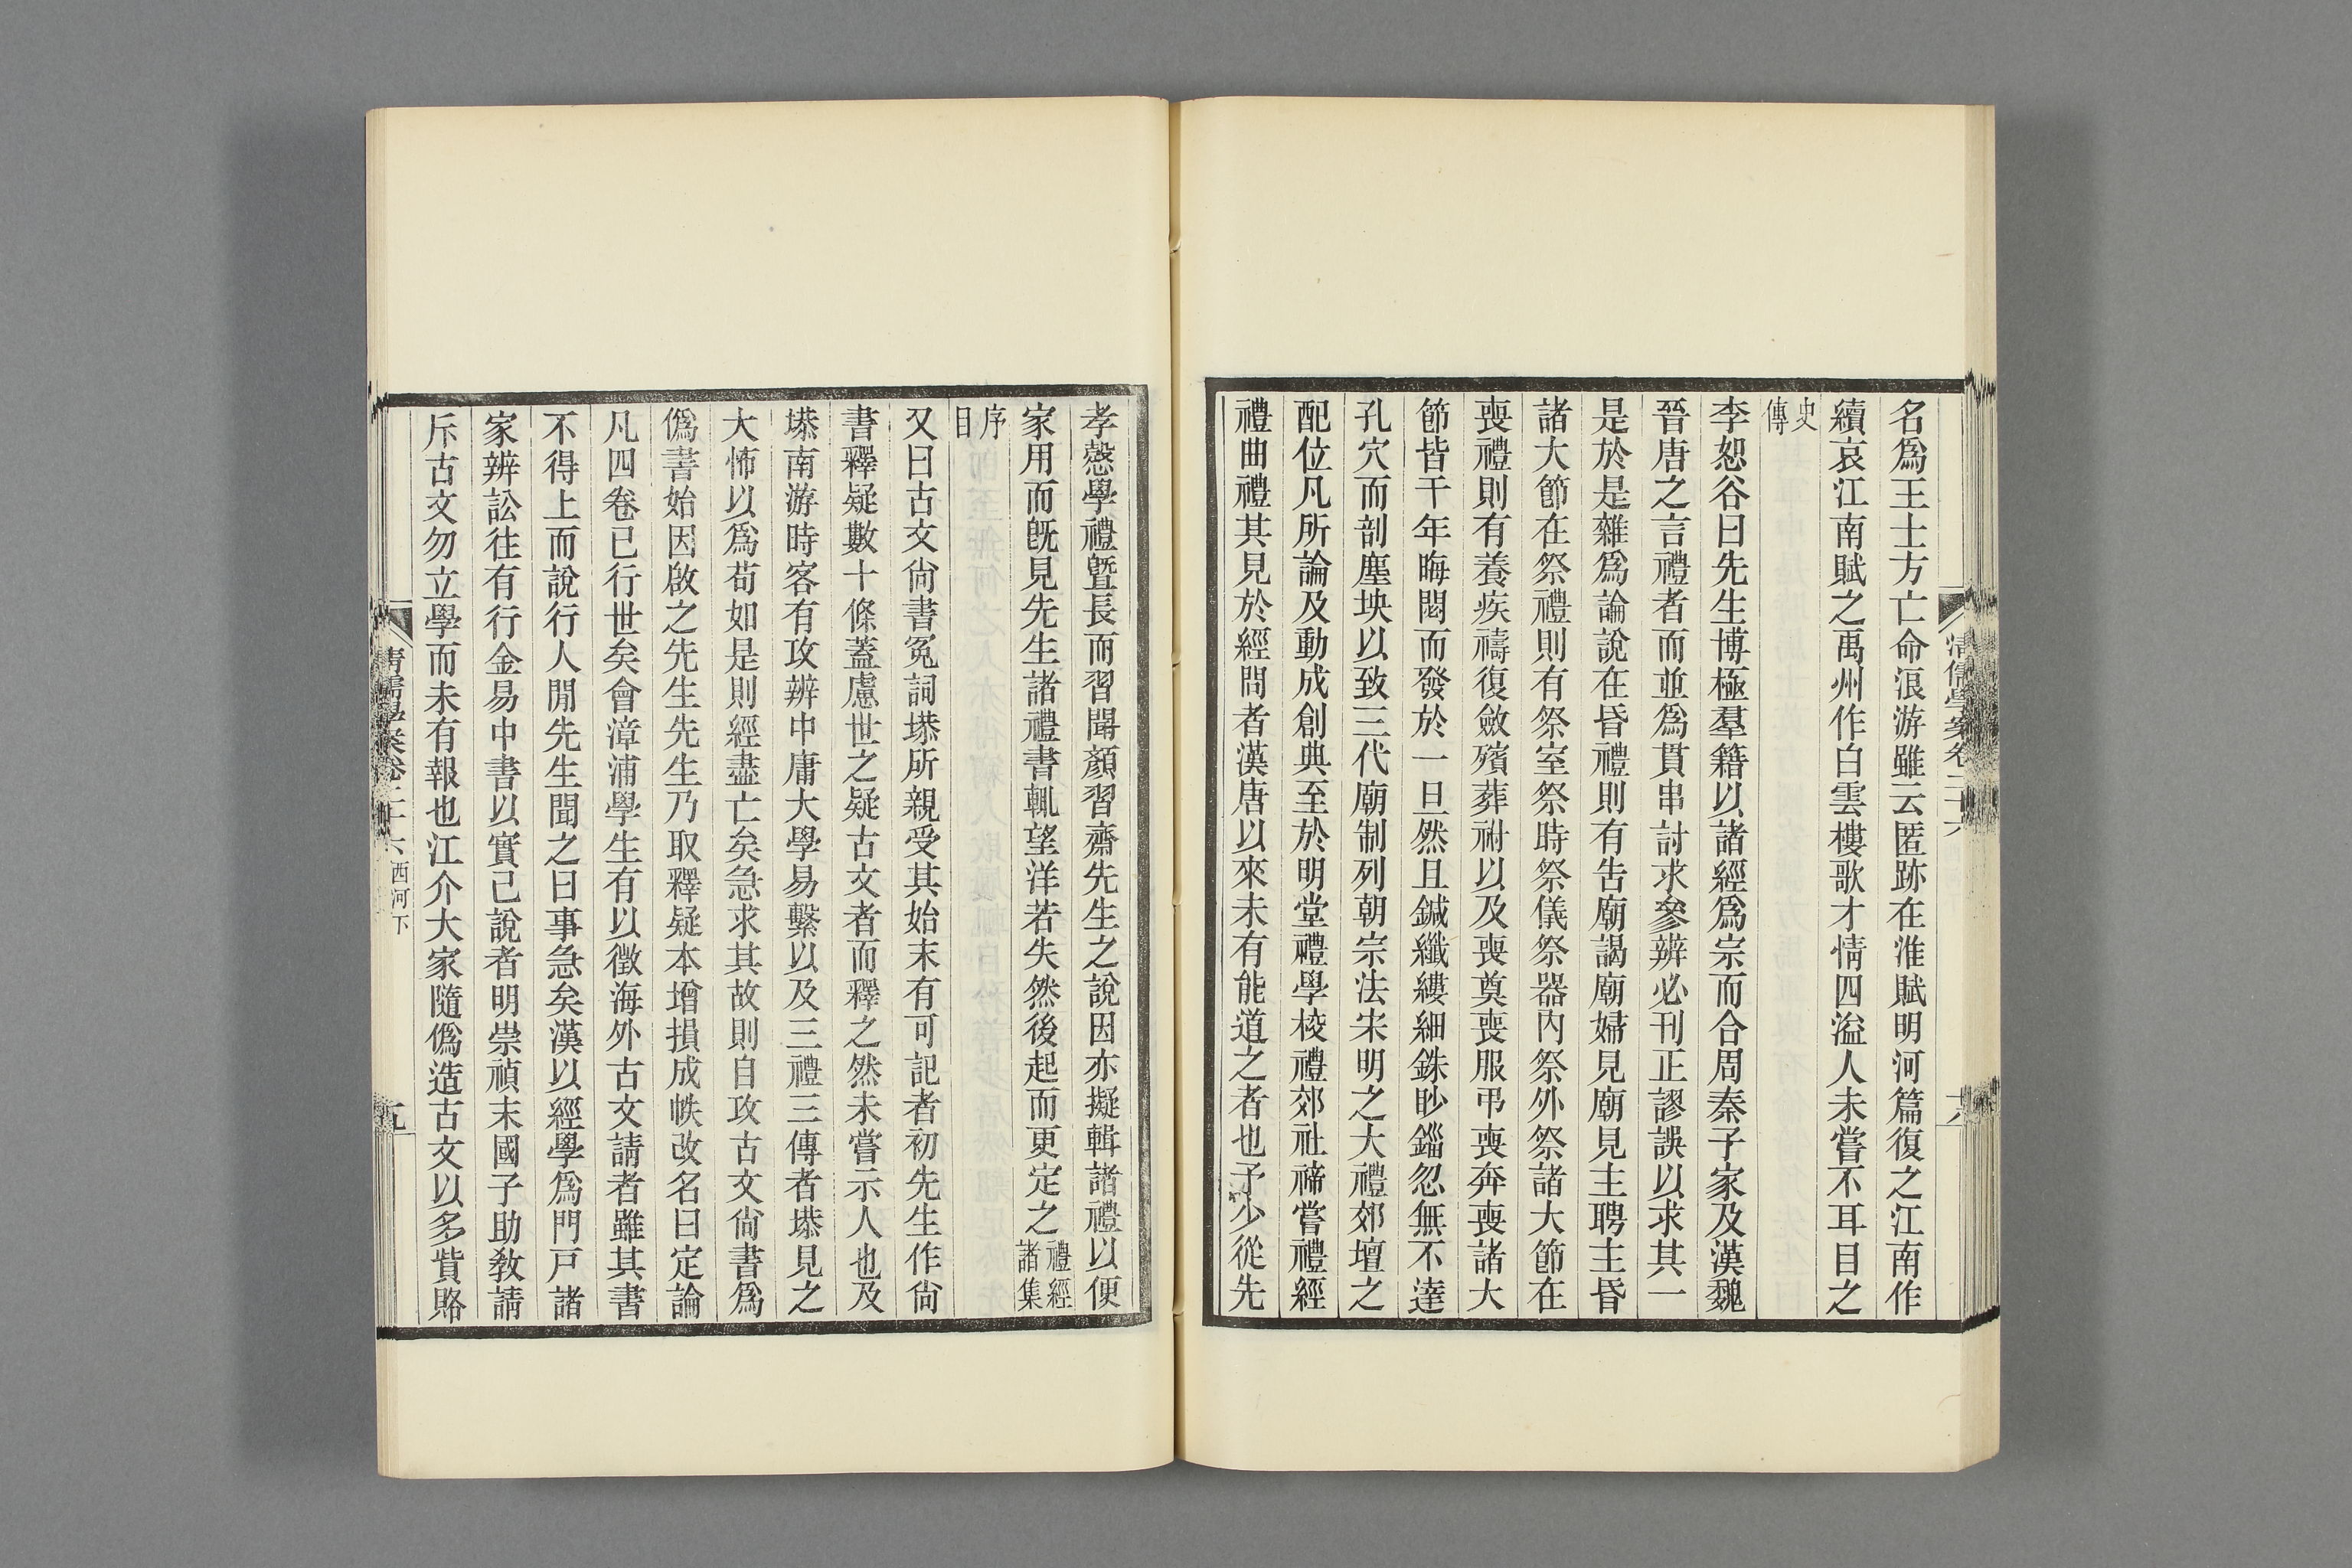 清儒學案卷二十六
十八
名爲王士方亡命浪游雖云匿跡在淮賦明河篇復之江南作
續哀江南賦之禹州作白雲樓歌才情四溢人未嘗不耳目之
史傳
李恕谷曰先生博極羣籍以諸經爲宗而合周秦子家及漢魏
晉唐之言禮者而並爲貫串討求參辨必刊正謬誤以求其一
是於是雜爲論說在昏禮則有告廟謁廟婦見廟見主聘主昏
諸大節在祭禮則有祭室祭時祭儀祭器內祭外祭諸大節在
喪禮則有養疾禱復斂殯葬祔以及喪奠喪服弔喪奔喪諸大
節皆千年晦悶而發於一旦然且鍼纖縷細銖眇錙忽無不達
孔穴而剖塵坱以致三代廟制列朝宗法宋明之大禮郊壇之
配位凡所論及動成創典至於明堂禮學校禮郊社禘嘗禮經
禮曲禮其見於經問者漢唐以來未有能道之者也予少從先
孝愨學禮曁長而習聞顏習齋先生之說因亦擬輯諸禮以便
家用而旣見先生諸禮書輒望洋若失然後起而更定之禮經諸集
序目
又曰古文尙書冤詞塨所親受其始末有可記者初先生作尙
書釋疑數十條蓋慮世之疑古文者而釋之然未嘗示人也及
塨南游時客有攻辨中庸大學易繫以及三禮三傳者塨見之
大怖以爲苟如是則經盡亡矣急求其故則自攻古文尙書爲
僞書始因啟之先生先生乃取釋疑本增損成帙改名曰定論
凡四卷已行世矣會漳浦學生有以徵海外古文請者雖其書
不得上而說行人閒先生聞之曰事急矣漢以經學爲門戶諸
家辨訟往有行金易中書以實己說者明崇禎末國子助敎請
斥古文勿立學而未有報也江介大家隨僞造古文以多貲賂
清儒學案卷二十六 西河下